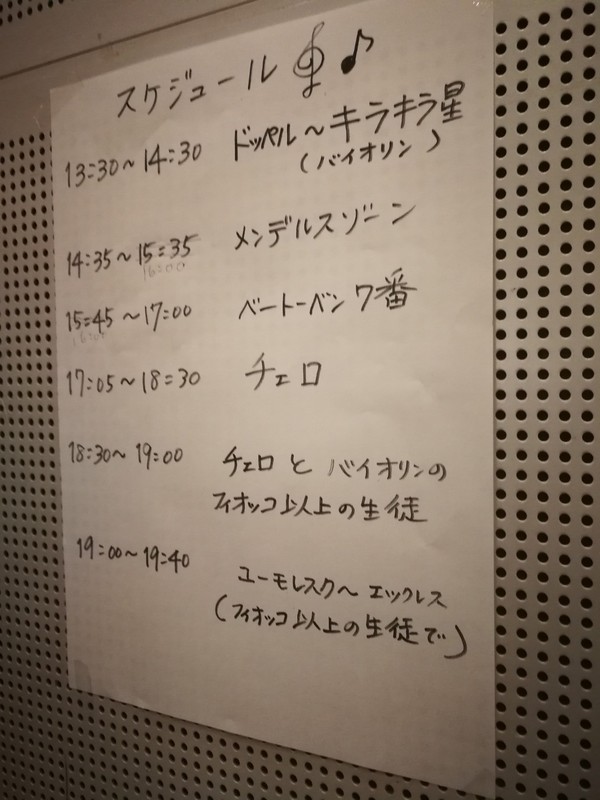 スケジュール
13:30〜14:30 ドッペル〜キラキラ星
(バイオリン)
14:35〜15:35 メンデルスゾーン
16:00
15:45〜17:00 ベートーベン7番
17:05〜18:30 チェロ
18:30〜19:00 チェロとバイオリンの
フィオッコ以上の生徒
19:00〜19:40 ユーモレスク〜エックレス
(フィオッコ以上の生徒で)